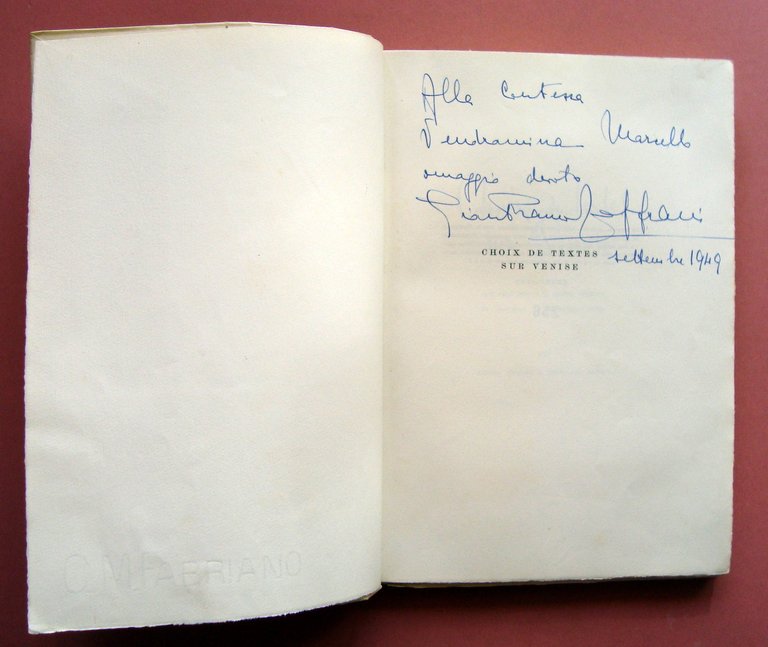 Alla Contessa
Vendramina Marcello
omaggio devoto
CHOIX DE TEXTES
SUR VENISE
settembre 1949
C.M. FABRIANO